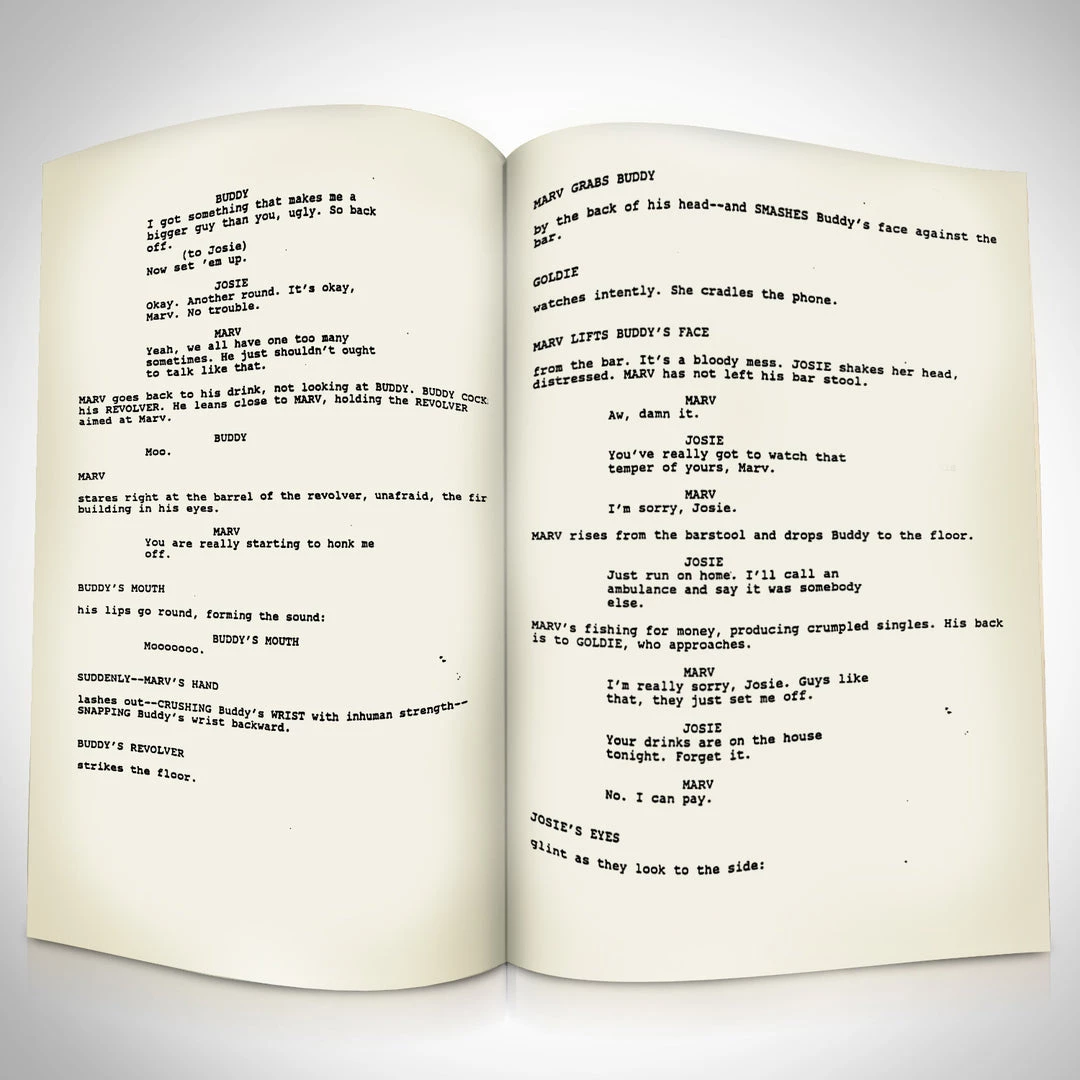 BUDDY
I got something that makes me a
bigger guy than you, ugly. So back
off.
(to Josie)
Now set 'em up.
JOSIE
Okay. Another round. It's okay,
Marv. No trouble.
MARV
Yeah, we all have one too many
sometimes. He just shouldn't ought
to talk like that.
MARV goes back to his drink, not looking at BUDDY. BUDDY COCK
his REVOLVER. He leans close to MARV, holding the REVOLVER
aimed at Marv.
BUDDY
Moo.
MARV
stares right at the barrel of the revolver, unafraid, the fir
building in his eyes.
MARV
You are really starting to honk me
off.
BUDDY'S MOUTH
his lips go round, forming the sound:
BUDDY'S MOUTH
Mooooooo.
SUDDENLY--MARV'S HAND
lashes out--CRUSHING Buddy's WRIST with inhuman strength--
SNAPPING Buddy's wrist backward.
BUDDY'S REVOLVER
strikes the floor.
MARV GRABS BUDDY
by the back of his head--and SMASHES Buddy's face against the
bar.
GOLDIE
watches intently. She cradles the phone.
MARV LIFTS BUDDY'S FACE
from the bar. It's a bloody mess. JOSIE shakes her head,
distressed. MARV has not left his bar stool.
MARV
Aw, damn it.
JOSIE
You've really got to watch that
temper of yours, Marv.
MARV
I'm sorry, Josie.
MARV rises from the barstool and drops Buddy to the floor.
JOSIE
Just run on home. I'll call an
ambulance and say it was somebody
else.
MARV's fishing for money, producing crumpled singles. His back
is to GOLDIE, who approaches.
MARV
I'm really sorry, Josie. Guys like
that, they just set me off.
JOSIE
Your drinks are on the house
tonight. Forget it.
MARV
No. I can pay.
JOSIE'S EYES
glint as they look to the side: